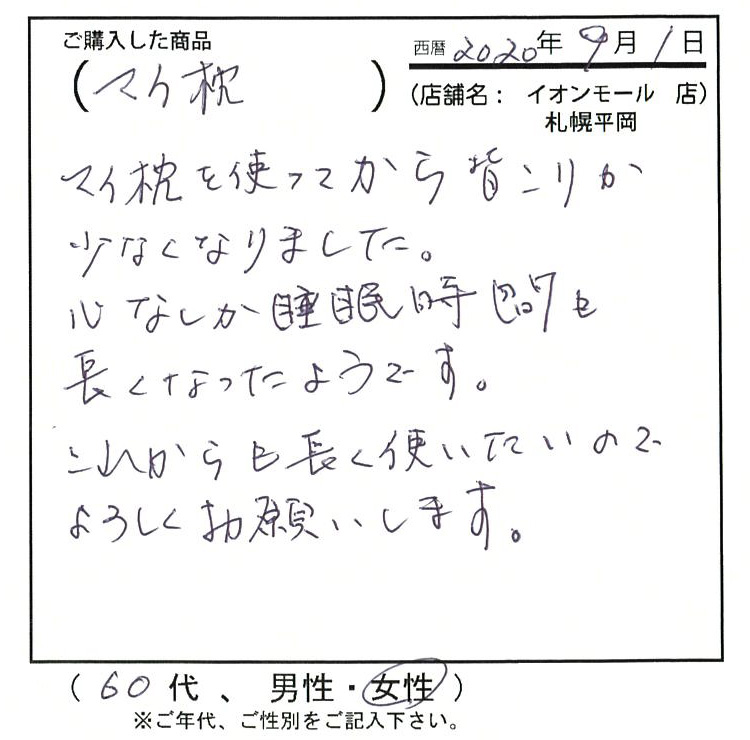 ご購入した商品
(マイ枕)
西暦2020年9月1日
(店舗名： イオンモール 店)
札幌平岡
マイ枕を使ってから背こりが
少なくなりました。
心なしか睡眠時間も
長くなったようです。
これからも長く使いたいので
よろしくお願いします。
(60代、男性・女性)
※ご年代、ご性別をご記入下さい。